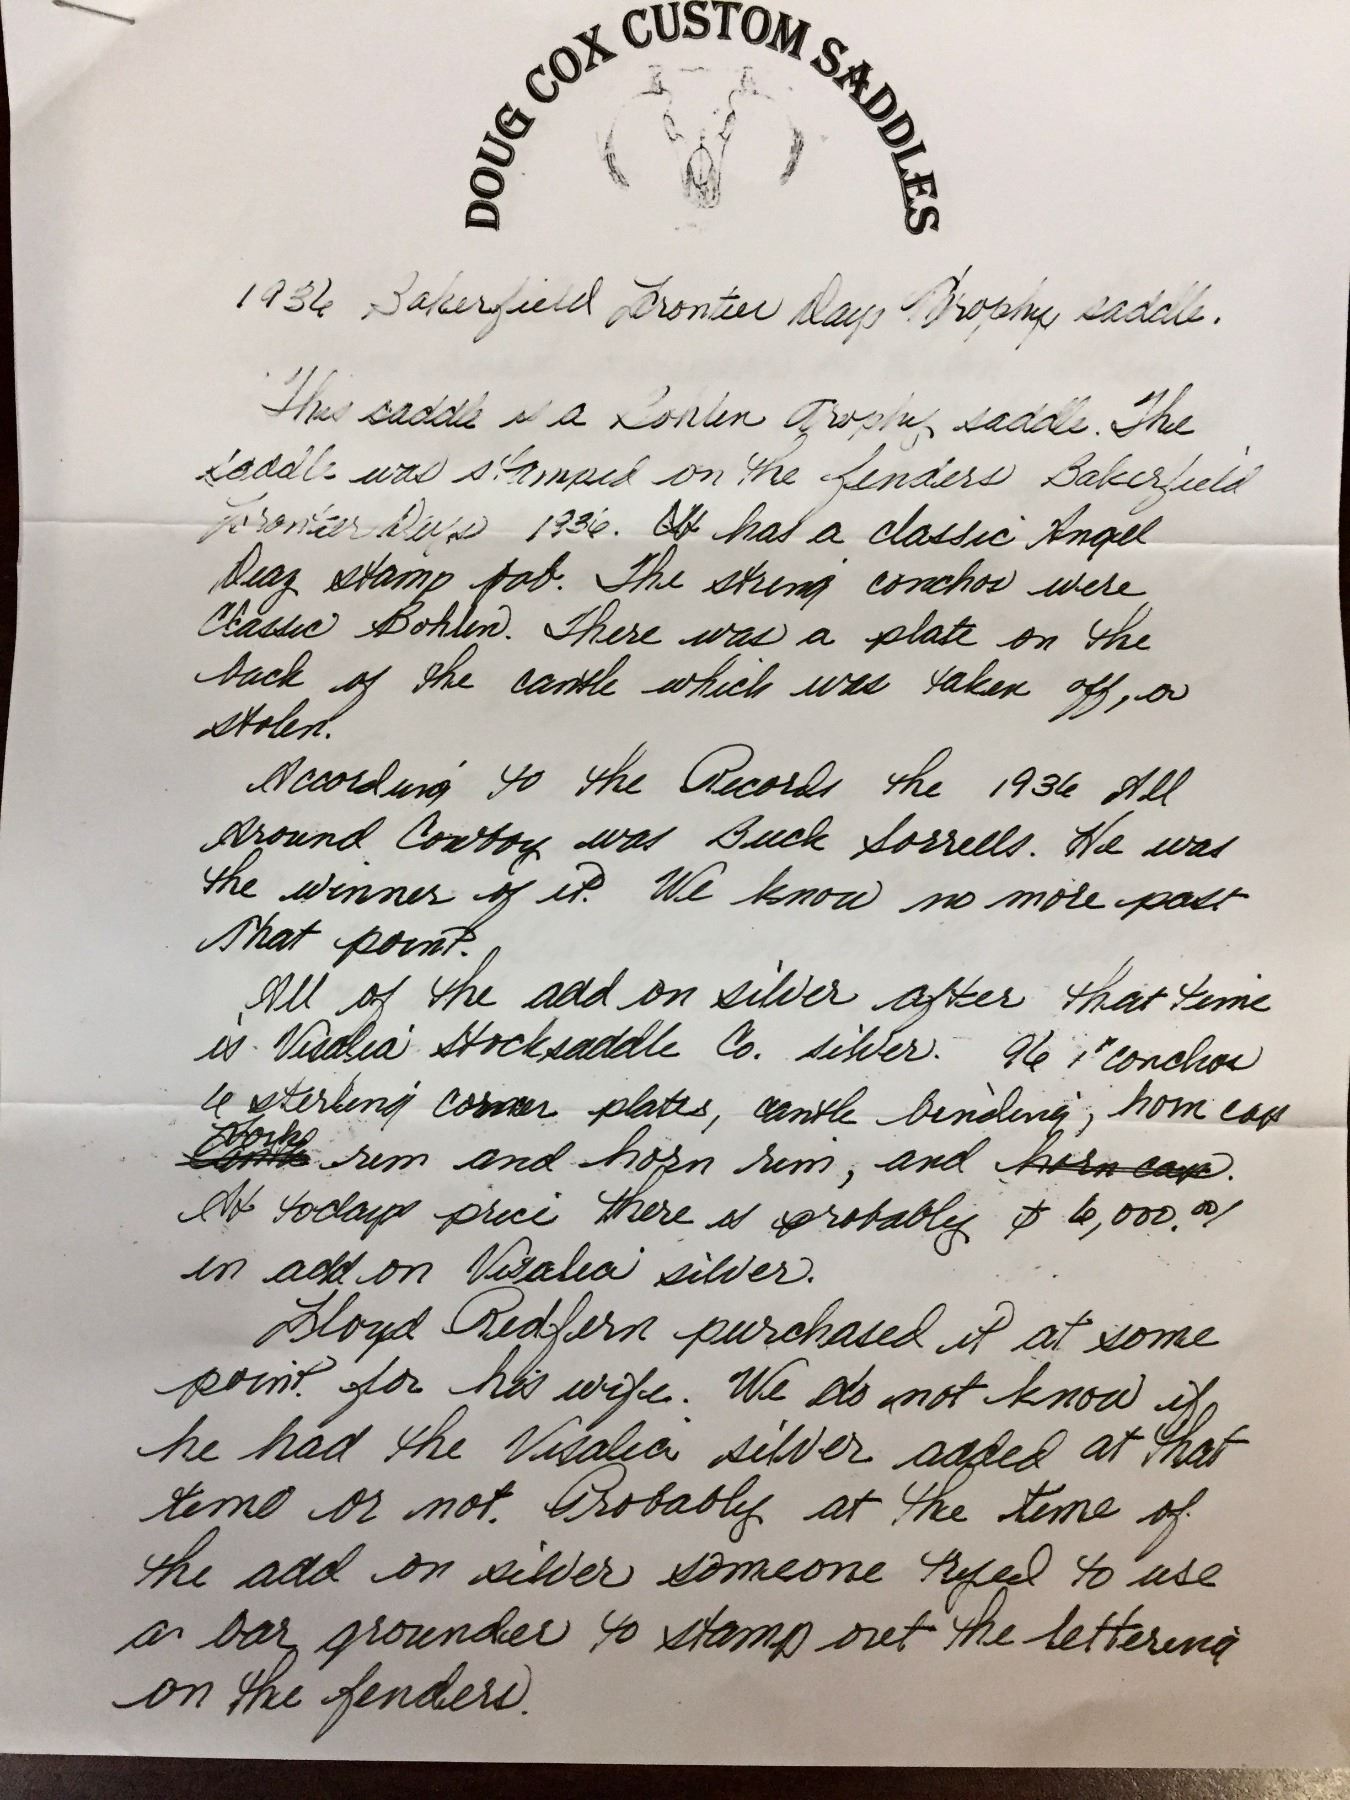 DOUG COX CUSTOM SADDLES
1936 Bakerfield Frontier Days Trophy saddle.
This saddle is a Bohlin Trophy saddle. The
saddle was stamped on the fenders Bakerfield
Frontier Days 1936. It has a classic Angel
Diaz stamp job. The string conchos were
Classic Bohlin. There was a plate on the
back of the cantle which was taken off, or
stolen.
According to the Records the 1936 All
Around Cowboy was Buck Sorrells. He was
the winner of it. We know no more past
that point.
All of the add on silver after that time
is Visalia Stocksaddle Co. silver. 96 1" conchos
6 sterling corner plates, cantle binding, horn cap
rim and horn rim, and horn cap.
At todays price there is probably $ 6,000.00
in add on Visalia silver.
Lloyd Redfern purchased it at some
point for his wife. We do not know if
he had the Visalia silver added at that
time or not. Probably at the time of
the add on silver someone tryed to use
a bar grounder to stamp out the lettering
on the fenders.